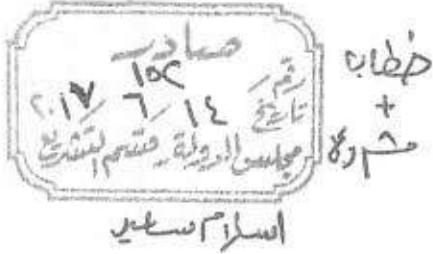 صادر
رقم ١٥٢
تاريخ ١٤ / ٦ / ٢٠١٧
مجلس الدولة - قسم التشريع
خطاب
+
اسلام سعيد